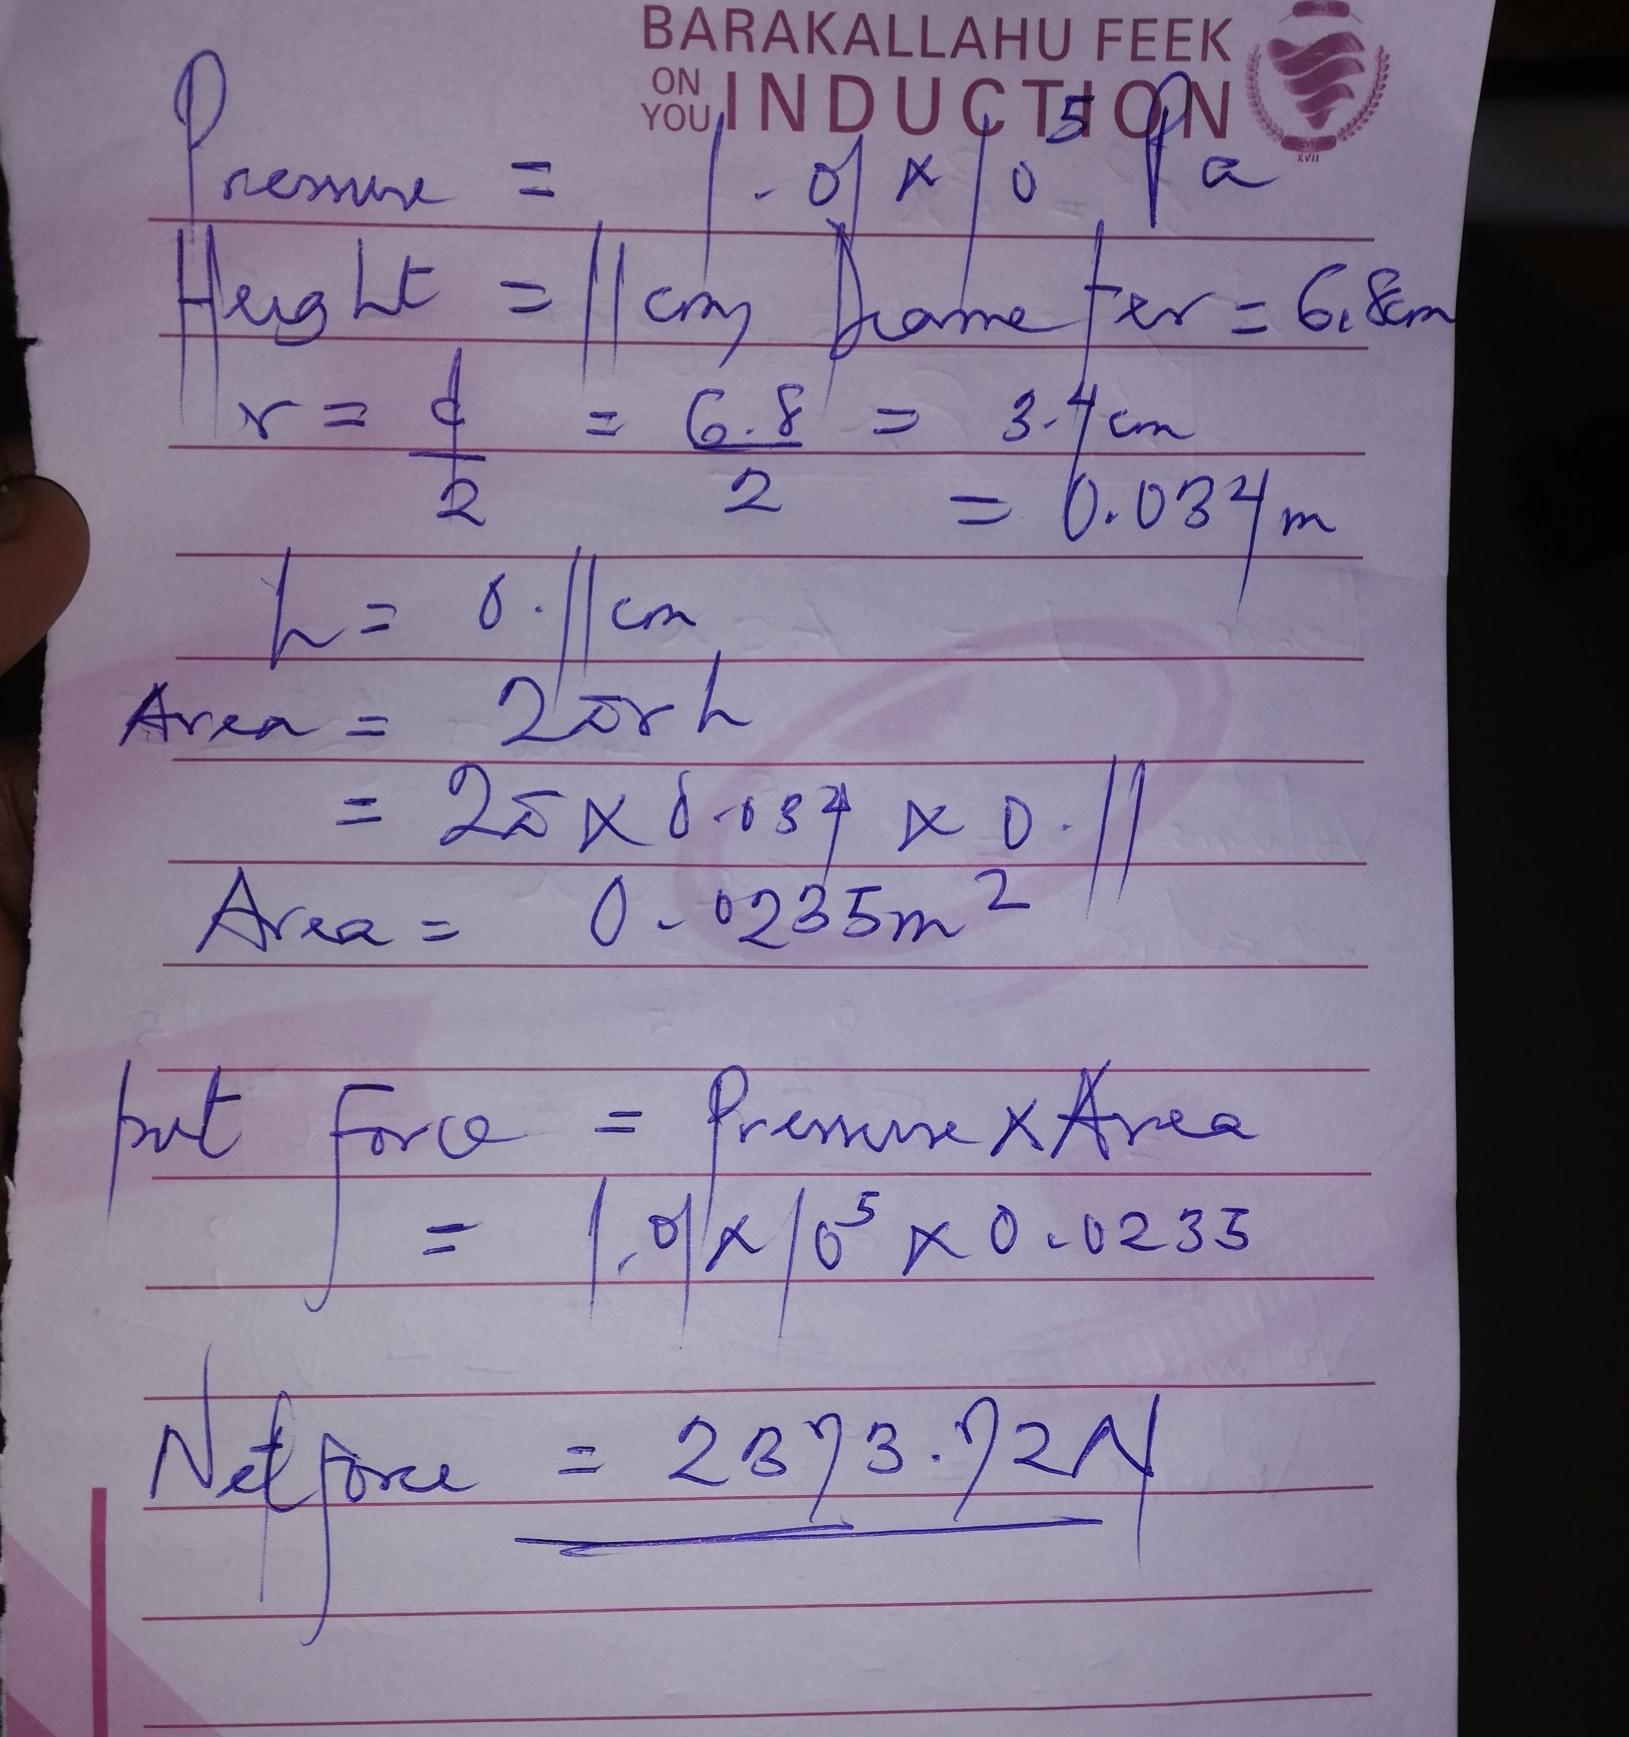 BARAKALLAHU FEEK
ON YOU INDUCTION
XVII
Pressure = 1.01 × 10⁵ Pa
Height = 11cm, Diameter = 6.8cm
r = d/2 = 6.8/2 = 3.4cm
= 0.034m
h = 0.11cm
Area = 2πrh
= 2π × 0.034 × 0.11
Area = 0.0235m²
but force = Pressure × Area
= 1.01 × 10⁵ × 0.0235
Net force = 2373.72N